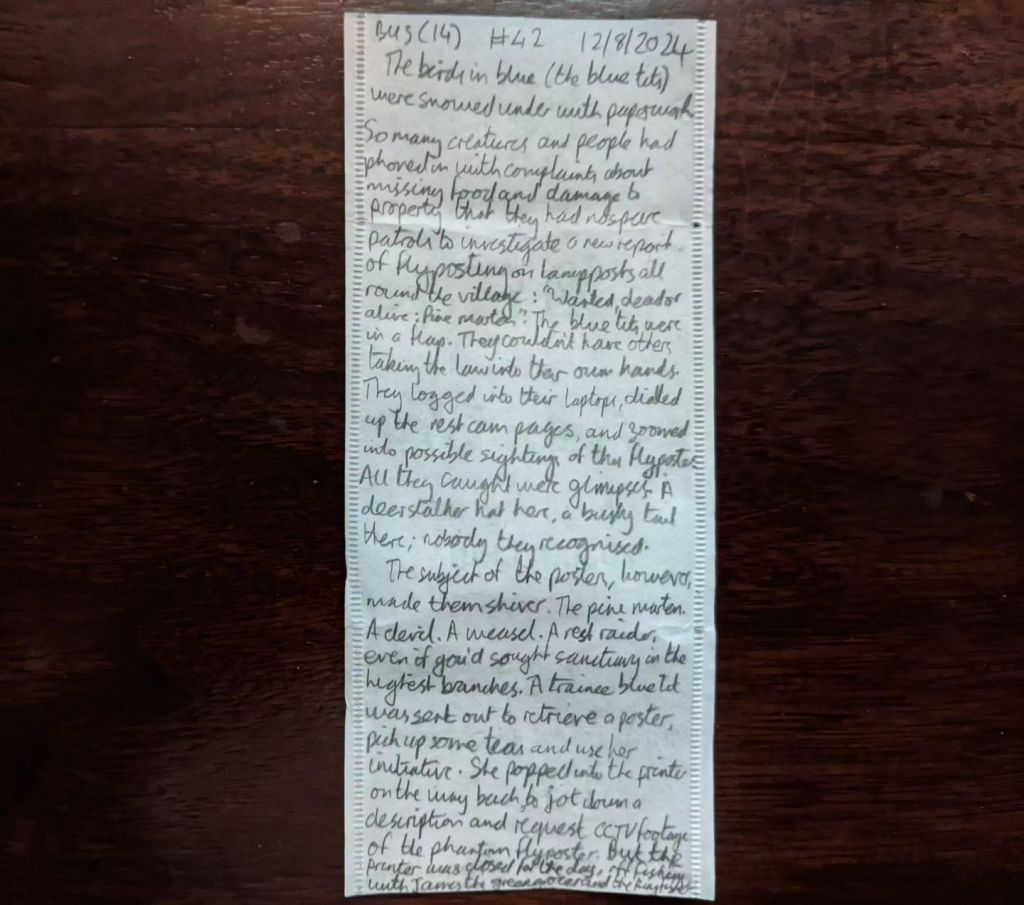 Bug (14) #42 12/8/2024
The birds in blue (the blue tits)
were snowed under with paperwork
So many creatures and people had
phoned in with complaints about
missing food and damage to
property that they had no spare
patrols to investigate a new report
of flyposting on lampposts all
round the village: "Wanted, dead or
alive: Pine marten". The blue tits were
in a flap. They couldn't have others
taking the law into their own hands.
They logged into their laptops, dialled
up the nest cam pages, and zoomed
into possible sightings of this flyposter.
All they caught were glimpses. A
deerstalker hat here, a bushy tail
there; nobody they recognised.
The subject of the poster, however,
made them shiver. The pine marten.
A devil. A weasel. A nest raider,
even if you'd sought sanctuary in the
highest branches. A trainee blue tit
was sent out to retrieve a poster,
pick up some teas and use her
initiative. She popped into the printer
on the way back, to jot down a
description and request CCTV footage
of the phantom flyposter. But the
printer was closed for the day, off fishing
with James the greengrocer and the kingfisher